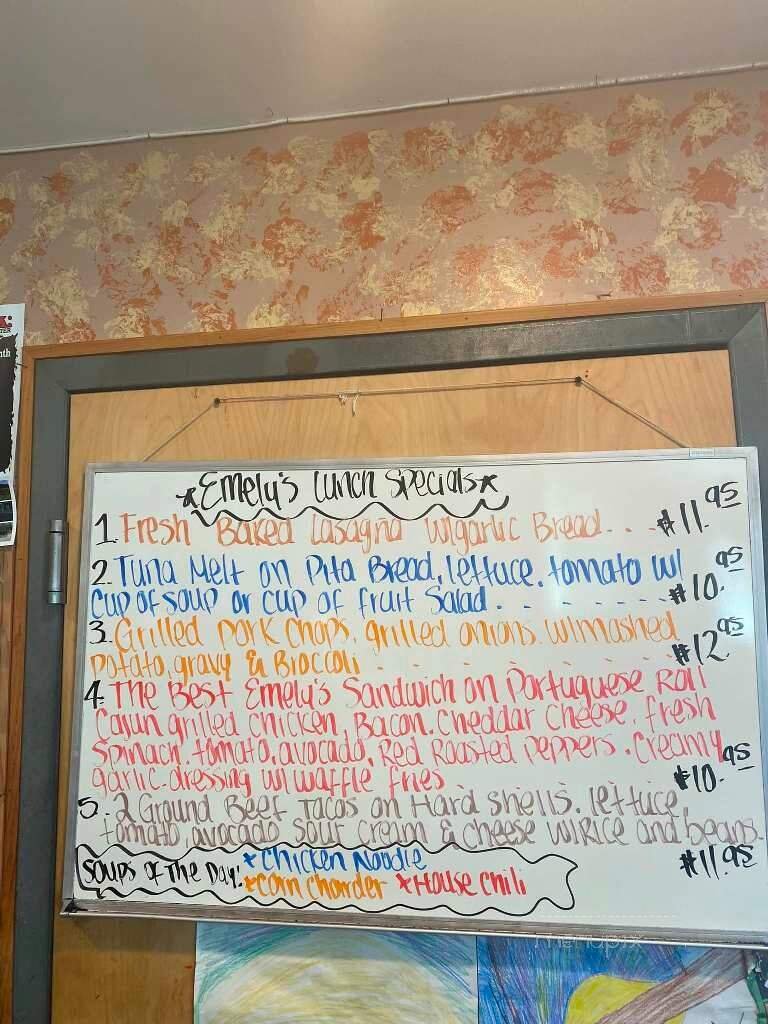 *Emely's Lunch Specials*
1. Fresh Baked Lasagna w/garlic Bread. . . $11.95
2. Tuna Melt on Pita Bread, lettuce, tomato w/
cup of soup or cup of fruit Salad. . . . . . . $10.95
3. Grilled Pork Chops, grilled onions w/mashed
potato, gravy & Broccoli . . . . . . . $12.95
4. The Best Emely's Sandwich on Portuguese Roll
Cajun grilled chicken, Bacon, Cheddar Cheese, fresh
Spinach, tomato, avocado, Red Roasted peppers, Creamy
garlic dressing w/ waffle fries $10.95
5. 2 Ground Beef Tacos on Hard shells, lettuce,
tomato, avocado sour cream & cheese w/Rice and beans.
$11.95
Soups of The Day: *Chicken Noodle
*Corn Chowder *House Chili
menupix